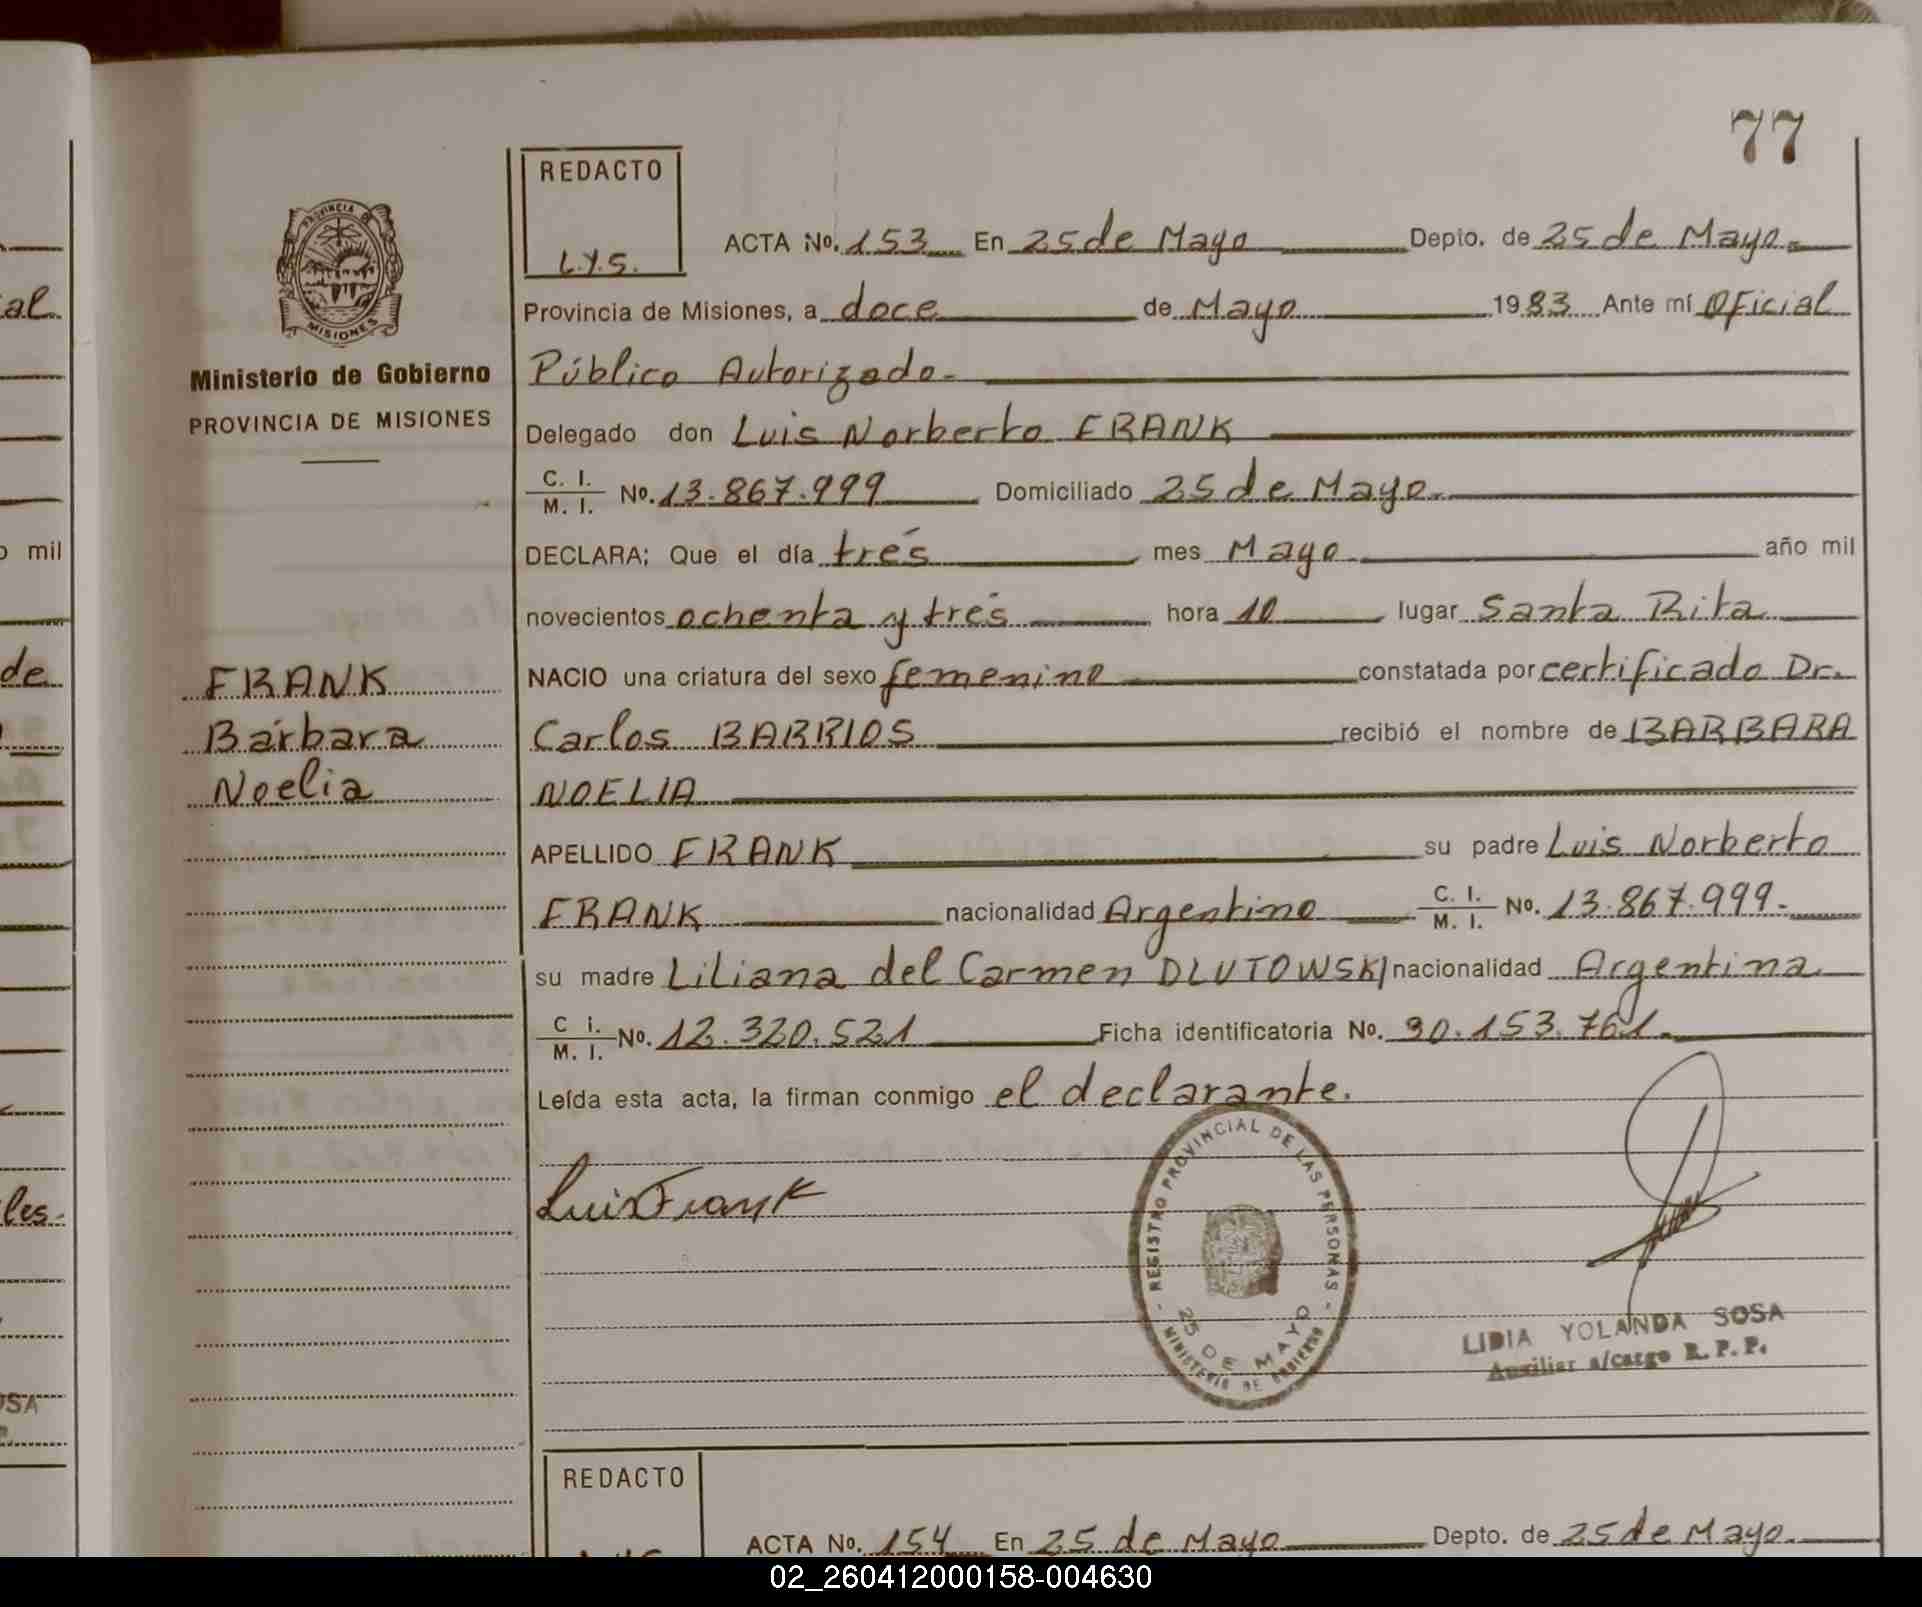 77
REDACTO
L.Y.S.
PROVINCIA DE
MISIONES
Ministerio de Gobierno
PROVINCIA DE MISIONES
ACTA No. 153 En 25 de Mayo Depto. de 25 de Mayo.
Provincia de Misiones, a doce de Mayo 1983 Ante mí Oficial
Público Autorizado.
Delegado don Luis Norberto FRANK
C. I. / M. I. No. 13.867.999 Domiciliado 25 de Mayo.
DECLARA; Que el día trés mes Mayo año mil
novecientos ochenta y trés hora 10 lugar Santa Rita
FRANK
Bárbara
Noelia
NACIO una criatura del sexo femenino constatada por certificado Dr.
Carlos BARRIOS recibió el nombre de BARBARA
NOELIA
APELLIDO FRANK su padre Luis Norberto
FRANK nacionalidad Argentino C. I. / M. I. No. 13.867.999.
su madre Liliana del Carmen DLUTOWSKI nacionalidad Argentina
C I. / M. I. No. 12.320.521 Ficha identificatoria No. 30.153.761.
Leída esta acta, la firman conmigo el declarante.
Luis Frank
REGISTRO PROVINCIAL DE LAS PERSONAS
25 DE MAYO
MINISTERIO DE GOBIERNO
LIDIA YOLANDA SOSA
Auxiliar a/cargo R. P. P.
REDACTO
ACTA No. 154 En 25 de Mayo Depto. de 25 de Mayo.
al
o mil
de
les.
OSA
02_260412000158-004630